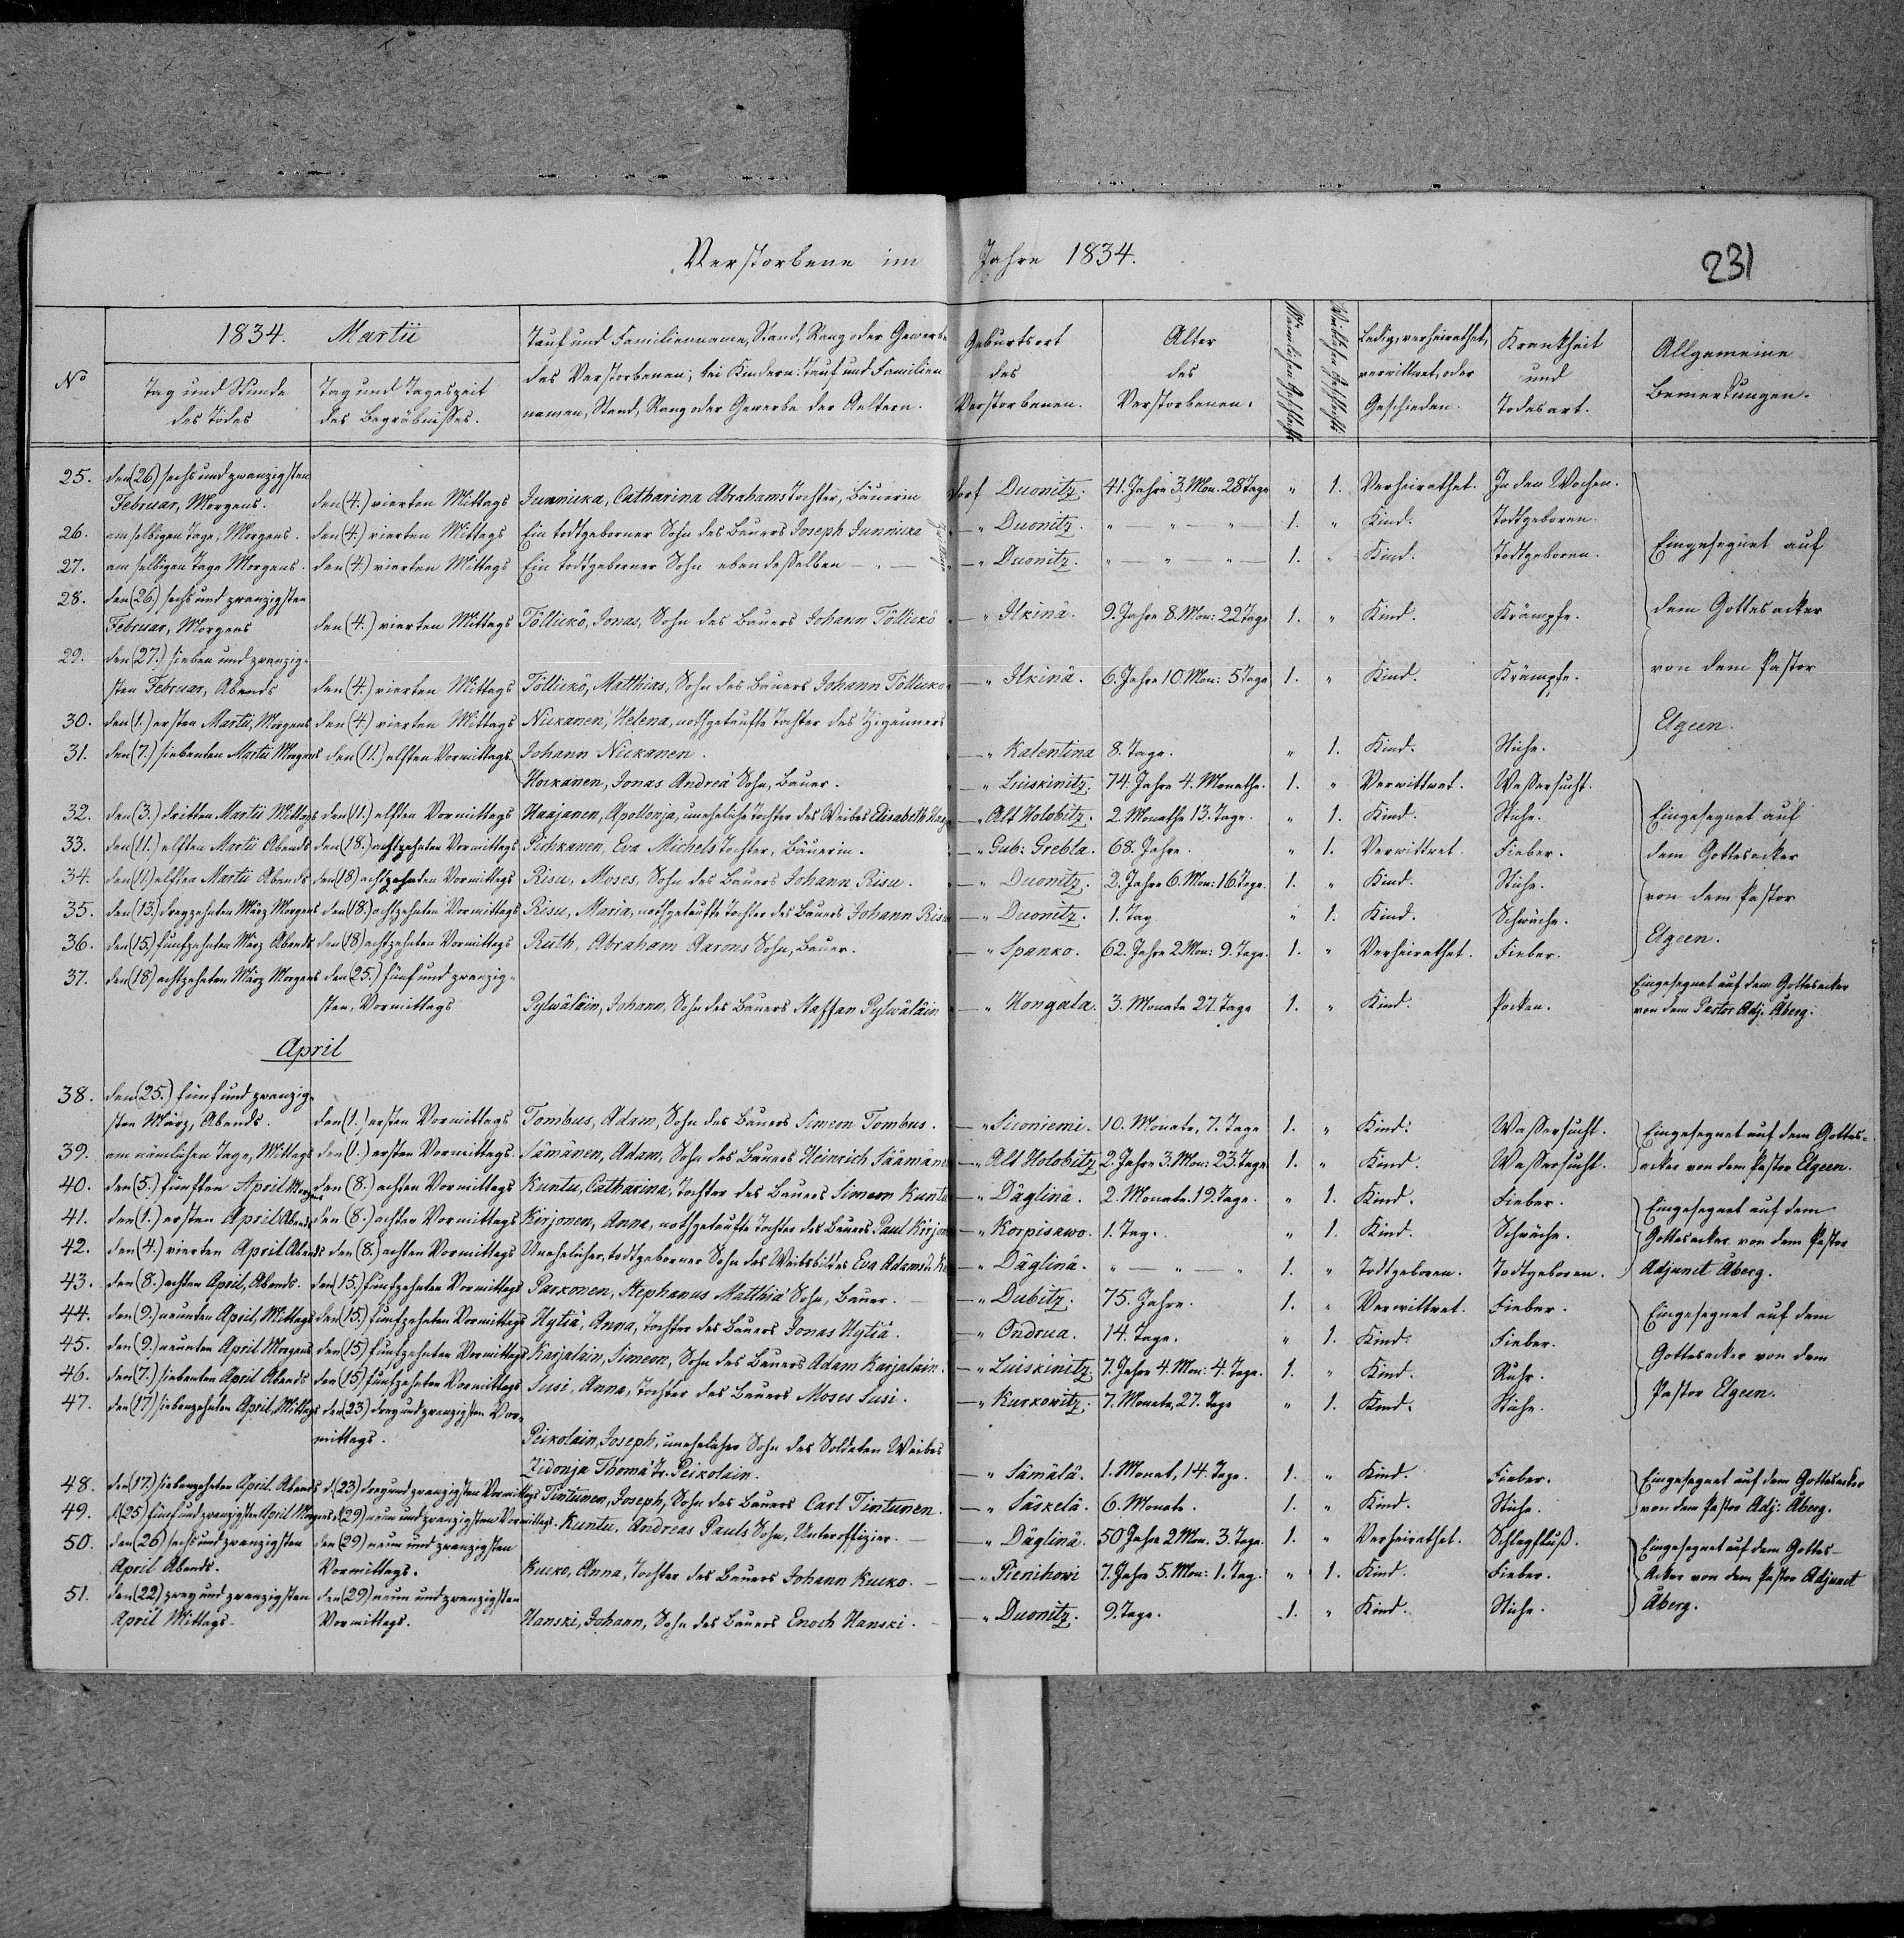 Verstorbene im Jahre 1834.
231
No
1834. Martii
Tag und Stunde des Todes
Tag und Tageszeit des Begräbnißes.
Tauf und Familienname, Stand, Rang oder Gewerbe
des Verstorbenen; bei Kindern: Tauf und Familien
namen, Stand, Rang oder Gewerbe der Aeltern.
Geburtsort des Verstorbenen.
Alter des Verstorbenen.
Männlichen Geschlechts
Weiblichen Geschlechts
Ledig, verheirathet, verwittwet, oder Geschieden.
Krankheit und Todesart.
Allgemeine Bemerkungen.
25. den (26) sechs und zwanzigsten
Februar, Morgens. den (4.) vierten Mittags Junnicka, Catharina Abrahams Tochter, Bäuerin Dorf Duonitz. 41. Jahre 3. Mon: 28 Tage " 1. Verheirathet. In den Wochen.
26. am selbigen Tage, Morgens. den (4.) vierten Mittags Ein todtgeborner Sohn des Bauers Joseph Junnicka — " Duonitz. " — " — " 1. " Kind. Todtgeboren.
27. am selbigen Tage Morgens. den (4.) vierten Mittags Ein todtgeborner Sohn eben desselben — " — — " Duonitz. " — " — " — 1. " Kind. Todtgeboren.
28. den (26.) sechs und zwanzigsten
Februar, Morgens den (4.) vierten Mittags Töllickö, Jonas, Sohn des Bauers Johann Töllickö — " Ilkinä. 9. Jahre 8. Mon: 22 Tage 1. " Kind. Krämpfe.
29. den (27.) sieben und zwanzig-
sten Februar, Abends den (4.) vierten Mittags Töllickö, Matthias, Sohn des Bauers Johann Töllickö — " Ilkinä. 6. Jahre 10. Mon: 5 Tage 1. " Kind. Krämpfe.
Eingesegnet auf
dem Gottesacker
von dem Pastor
Elgeen.
30. den (1.) ersten Martii, Morgens den (4.) vierten Mittags Nickanen, Helena, nothgetaufte Tochter des Zigeuners
31. den (7.) siebenten Martii Morgens den (11.) elften Vormittags Johann Nickanen. — " Kalentina 8. Tage. " 1. Kind. Stiche.
Hockanen, Jonas Andreä Sohn, Bauer. — " Luiskinitz. 74. Jahre 4. Monathe. 1. " Verwittwet. Wassersucht.
32. den (3.) dritten Martii Mittags den (11.) elften Vormittags Haajanen, Apollonja, uneheliche Tochter des Weibes Elisabeth — " Alt Holobitz. 2 Monathe 13. Tage. " 1. Kind. Stiche.
33. den (11.) elften Martii Abends den (18.) achtzehnten Vormittags Pichkanen, Eva Michels Tochter, Bäuerin. — " Gub: Grebla. 68. Jahre. " 1. Verwittwet. Fieber.
34. den (11.) elften Martii Abends den (18) achtzehnten Vormittags Risu, Moses, Sohn des Bauers Johann Risu. — " Duonitz. 2. Jahre 6. Mon: 16. Tage. 1. " Kind. Stiche.
35. den (13.) dreyzehnten März Morgens den (18.) achtzehnten Vormittags Risu, Maria, nothgetaufte Tochter des Bauers Johann Risu — " Duonitz. 1. Tag " 1. Kind. Schwäche.
36. den (15.) fünfzehnten März Abends den (18) achtzehnten Vormittags Ruth, Abraham Aarons Sohn, Bauer. — " Spanko. 62. Jahre 2 Mon: 9. Tage. 1. " Verheirathet. Fieber.
Eingesegnet auf
dem Gottesacker
von dem Pastor
Elgeen.
37. den (18) achtzehnten März Morgens den (25.) fünf und zwanzig-
sten, Vormittags Pylwäläin, Johann, Sohn des Bauers Staffan Pylwäläin — " Hongala. 3. Monate 27. Tage 1. " Kind. Pocken.
Eingesegnet auf dem Gottesacker
von dem Pastor Adj. Åberg.
April
38. den (25.) fünf und zwanzig-
sten März, Abends. den (1.) ersten Vormittags Tombus, Adam, Sohn des Bauers Simeon Tombus. — " Suoniemi. 10. Monate, 7. Tage 1. " Kind. Wassersucht.
39. am nämlichen Tage, Mittags den (1.) ersten Vormittags. Sämänen, Adam, Sohn des Bauers Heinrich — " Alt Holobitz 2. Jahre 3. Mon: 23. Tage 1. " Kind. Wassersucht.
Eingesegnet auf dem Gottes-
acker von dem Pastor Elgeen.
40. den (5.) fünften April Morgens den (8.) achten Vormittags Kuntu, Catharina, Tochter des Bauers Simeon Kuntu — " Däglinä. 2. Monate. 19. Tage. " 1. Kind. Fieber.
41. den (1.) ersten April Abends den (8.) achten Vormittags Kirjonen, Anna, nothgetaufte Tochter des Bauers Paul — " Korpisawo. 1. Tag. " 1. Kind. Schwäche.
42. den (4.) vierten April Abends den (8.) achten Vormittags Unehelicher, todtgeborner Sohn des Weibsbildes Eva Adams — " Däglinä. " — " — " 1. " Todtgeboren. Todtgeboren.
Eingesegnet auf dem
Gottesacker von dem Pastor
Adjunct Åberg.
43. den (8.) achten April, Abends. den (15.) fünfzehnten Vormittags Parkonen, Stephanus Matthiä Sohn, Bauer. — " Dubitz. 75. Jahre. 1. " Verwittwet. Fieber.
44. den (9.) neunten April, Mittags den (15.) fünfzehnten Vormittags Hytiä, Anna, Tochter des Bauers Jonas Hytiä. — " Ondrua. 14. Tage. " 1. Kind. Fieber.
45. den (9.) neunten April Morgens den (15) fünfzehnten Vormittags Karjalain, Simeon, Sohn des Bauers Adam Karjalain. — " Luiskinitz. 7. Jahre 4. Mon: 4. Tage. 1. " Kind. Ruhr.
46. den (7.) siebenten April Abends den (15) fünfzehnten Vormittags Susi, Anna, Tochter des Bauers Moses Susi. — " Kurkowitz. 7. Monate, 27. Tage " 1. Kind. Stiche.
Eingesegnet auf dem
Gottesacker von dem
Pastor Elgeen.
47. den (17) siebenzehnten April, Mittags den (23) drey und zwanzigsten Vor-
mittags. Peikolain, Joseph, unehelicher Sohn des Soldaten Weibes
Zidonja Thomä Tr. Peikolain. — " Sämälä. 1. Monat, 14. Tage. 1. " Kind. Fieber.
48. den (17.) siebenzehnten April Abends d. (23) drey und zwanzigsten Vormittags Tintunen, Joseph, Sohn des Bauers Carl Tintunen. — " Säskelä. 6. Monate. 1. " Kind. Stiche.
Eingesegnet auf dem Gottesacker
von dem Pastor Adj: Åberg.
49. d. (25) fünf und zwanzigsten April Morgens d. (29) neun und zwanzigsten Vormittags. Kuntu, Andreas Pauls Sohn, Unteroffizier. — " Däglinä. 50 Jahre 2 Mon. 3. Tage. 1. " Verheirathet. Schlagfluß.
50. den (26) sechs und zwanzigsten den (29) neun und zwanzigsten
April Abends. Vormittags. Kucko, Anna, Tochter des Bauers Johann Kucko. — " Pienihowi 7. Jahre 5. Mon: 1. Tag. " 1. Kind. Fieber.
51. den (22) zwey und zwanzigsten den (29) neun und zwanzigsten
April Mittags Vormittags. Hanski, Johann, Sohn des Bauers Enoch Hanski. — " Duonitz. 9. Tage. 1. " Kind. Stiche.
Eingesegnet auf dem Gottes-
Acker von dem Pastor Adjunct
Åberg.